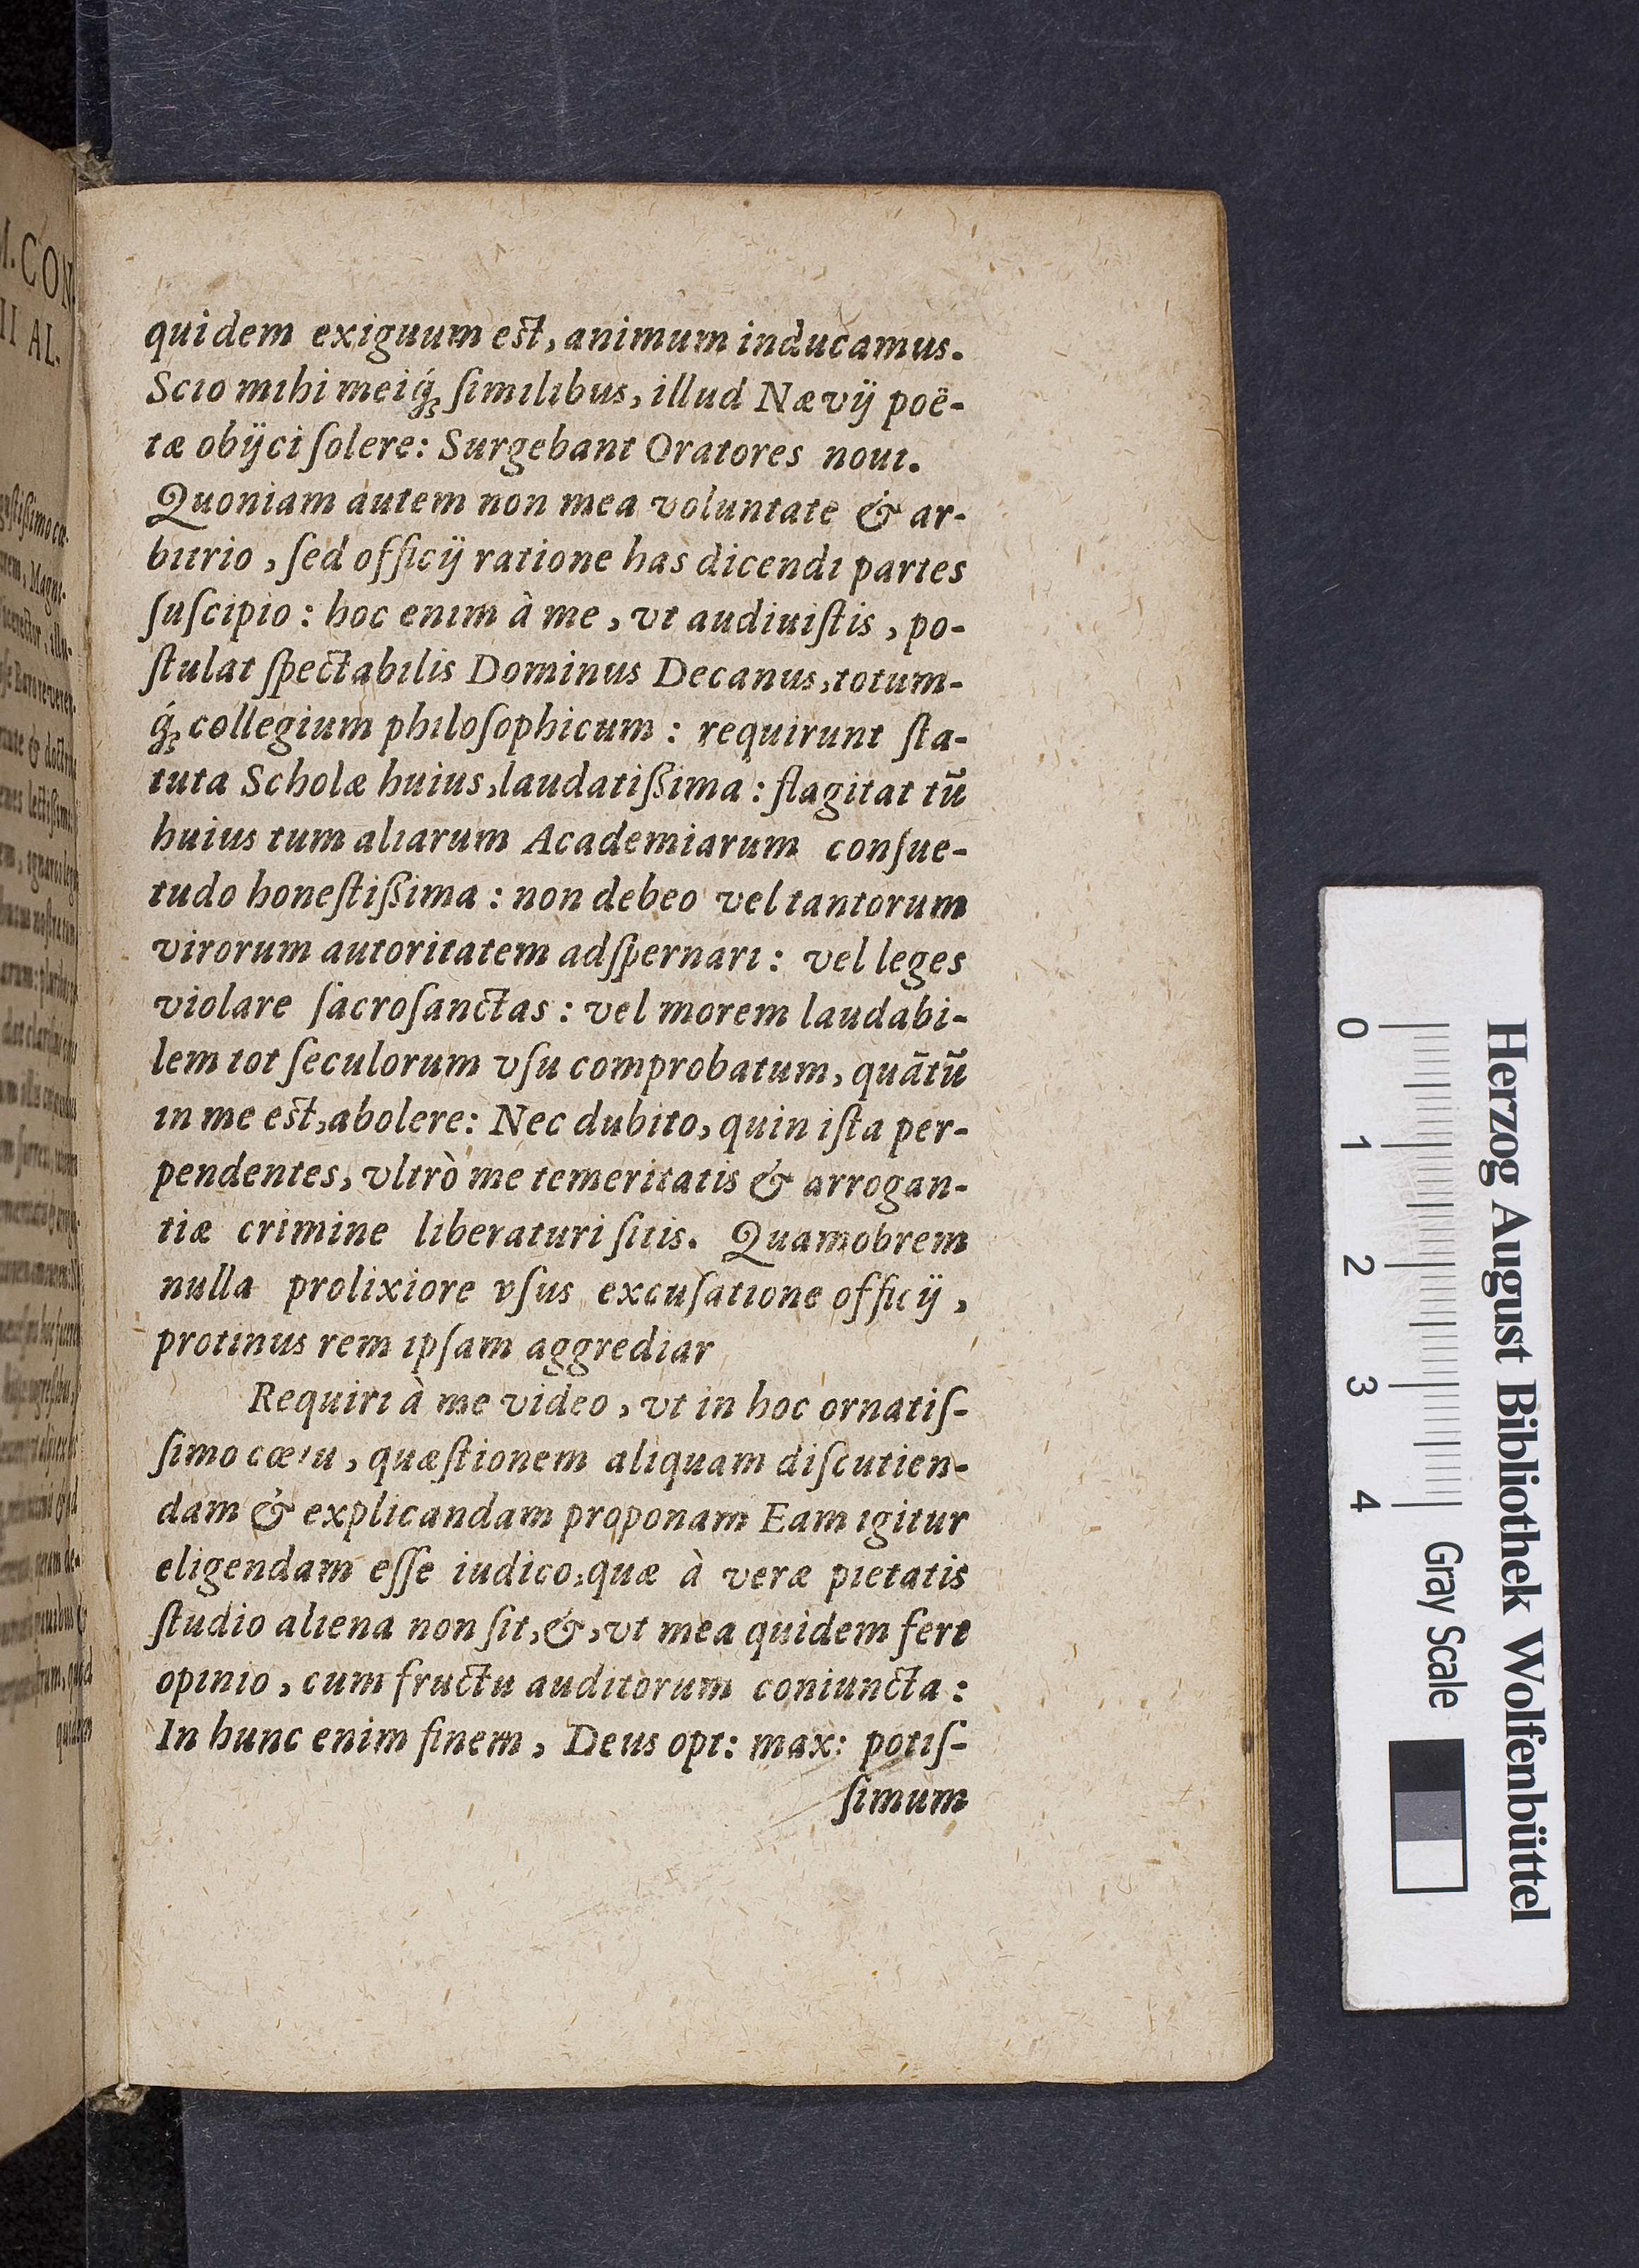 quidem exiguum est, animum inducamus.
Scio mihi meiq́ꝫ ſimilibus, illud Nævij poë-
tæ obijci ſolere: Surgebant Oratores noui.
Quoniam autem non mea voluntate & ar-
bitrio, ſed officij ratione has dicendi partes
ſuſcipio: hoc enim à me, vt audiuiſtis, po-
ſtulat ſpectabilis Dominus Decanus, totum-
q́ꝫ collegium philoſophicum: requirunt ſta-
tuta Scholæ huius, laudatißima: flagitat tū
huius tum aliarum Academiarum conſue-
tudo honeſtißima: non debeo vel tantorum
virorum autoritatem adſpernari: vel leges
violare ſacroſanctas: vel morem laudabi-
lem tot ſeculorum vſu comprobatum, quātū
in me est, abolere: Nec dubito, quin iſta per-
pendentes, vltrò me temeritatis & arrogan-
tiæ crimine liberaturi ſitis. Quamobrem
nulla prolixiore vſus excuſatione officij,
protinus rem ipſam aggrediar
Requiri à me video, vt in hoc ornatiſ-
ſimo cœtu, quæſtionem aliquam diſcutien-
dam & explicandam proponam Eam igitur
eligendam eſſe iudico, quæ à veræ pietatis
ſtudio aliena non ſit, &, vt mea quidem fert
opinio, cum fructu auditorum coniuncta:
In hunc enim finem, Deus opt: max: potiſ-
ſimum
M. CON-
II AL-
Herzog August Bibliothek Wolfenbüttel
0 1 2 3 4 Gray Scale